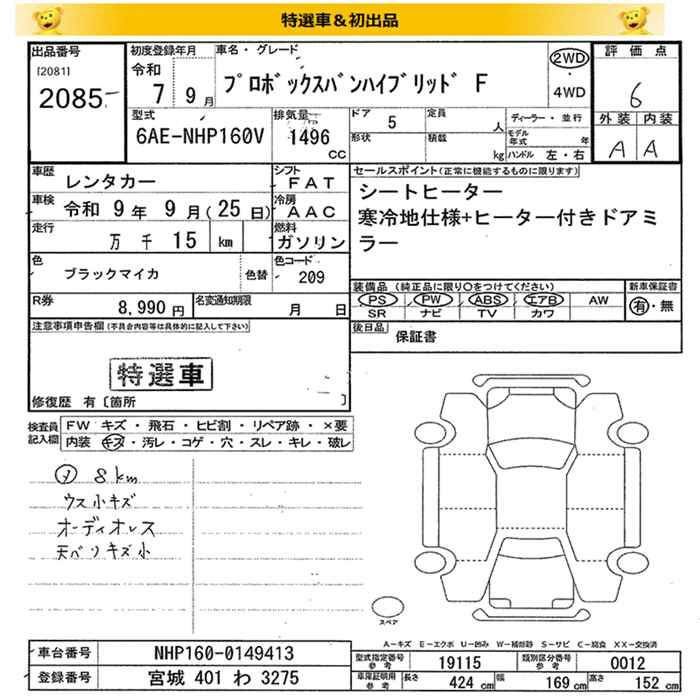 特選車＆初出品
出品番号 初度登録年月 車名・グレード 評価点
[2081] 令和 2WD
2085 7年 9月 プロボックスバンハイブリッド F 4WD 6
型式 排気量 ドア 5 定員 人 ディーラー・並行 外装 内装
6AE-NHP160V 1496 CC 形状 積載 kg モデル年式 年 A A
ハンドル 左・右
車歴 レンタカー シフト FAT セールスポイント(正常に機能するものに限ります)
車検 令和 9年 9月(25日) 冷房 AAC シートヒーター
走行 万 千 15 km 燃料 ガソリン 寒冷地仕様+ヒーター付きドアミ
ラー
色 ブラックマイカ 色替 色コード 209
装備品 (純正品に限り○をつけてください) 新車保証書
R券 8,990円 名変通知期限 月 日 PS PW ABS エアB AW 有・無
SR ナビ TV カワ
注意事項申告欄(不具合内容等は具体的に記入して下さい) 後日品 保証書
特選車
修復歴 有〔箇所 〕
検査員記入欄 FW キズ・飛石・ヒビ割・リペア跡・×要
内装 キズ・汚レ・コゲ・穴・スレ・キレ・破レ
メ 8km
ウス小キズ
オーディオレス
天ベリキズ小
スペア
A－キズ E－エクボ U－凹み W－補修跡 S－サビ C－腐食 XX－交換済
車台番号 NHP160-0149413 型式指定番号 参考 19115 類別区分番号 参考 0012
登録番号 宮城 401 わ 3275 車庫証明用 参考 長さ 424 cm 幅 169 cm 高さ 152 cm